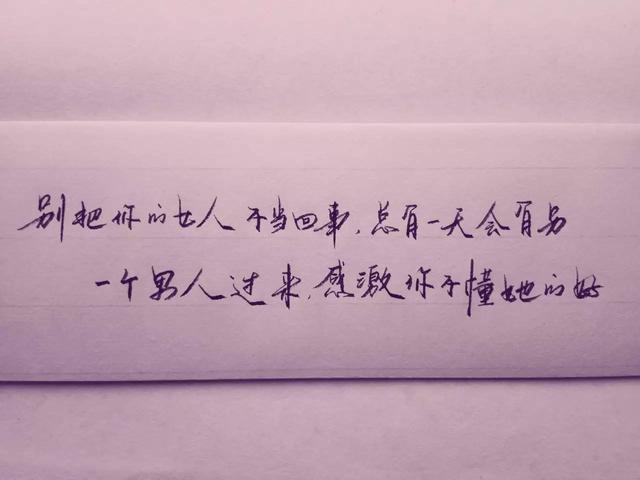 别把你的女人不当回事，总有一天会有另
一个男人过来，感激你不懂她的好